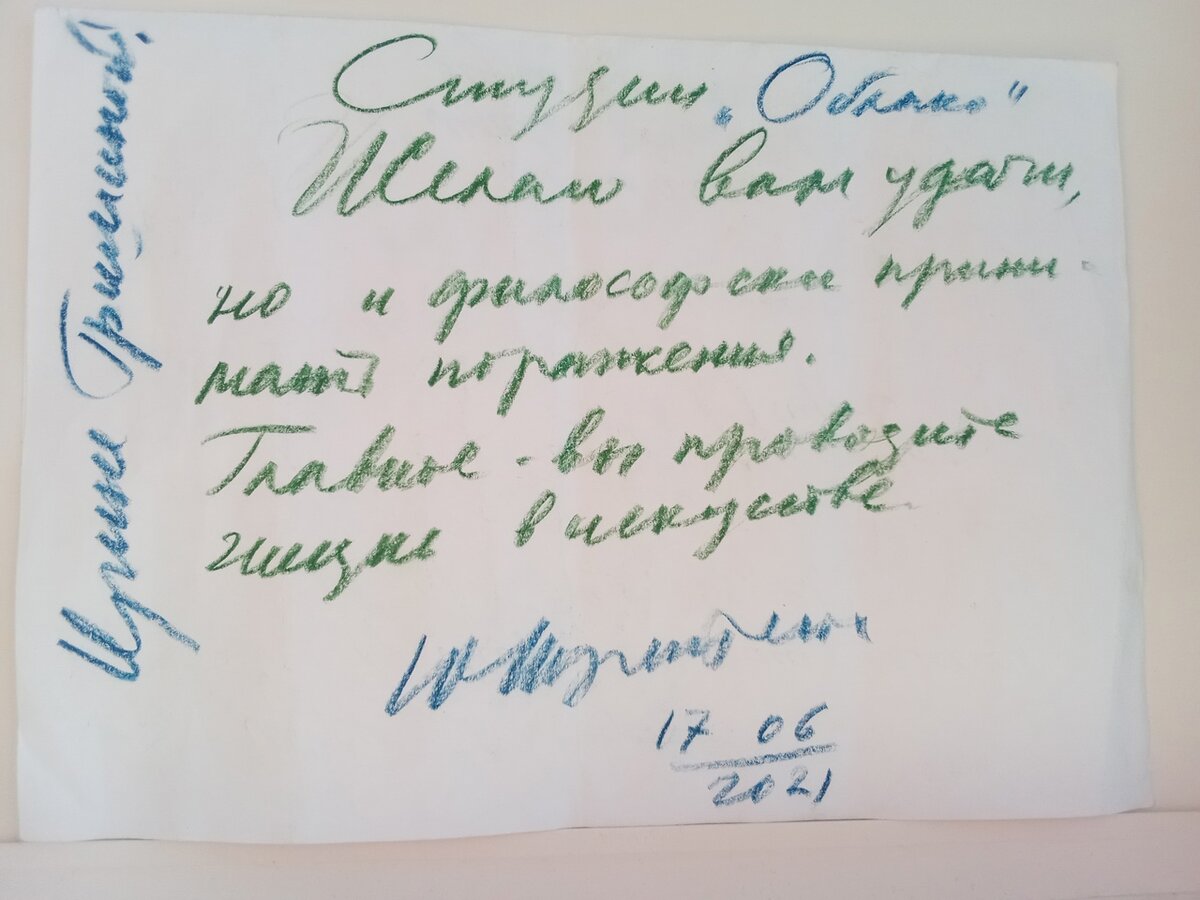 Студии „Облако“
Желаю вам удачи,
но и философски прини-
мать поражения.
Главное - вы проводите
жизнь в искусстве
Ю Норштейн
17 06
2021
Ирине Гришиной!